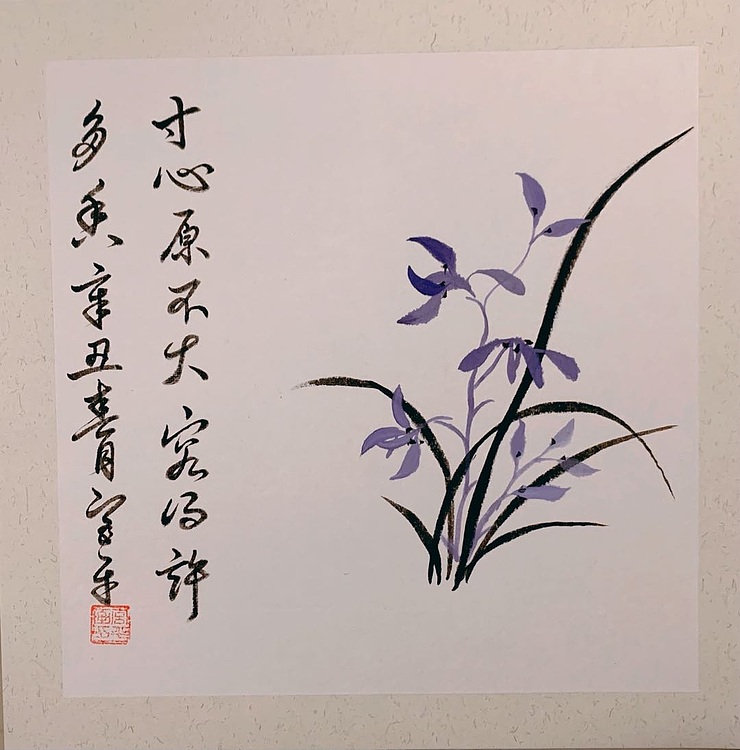 寸心原不大容得許
多香辛丑青